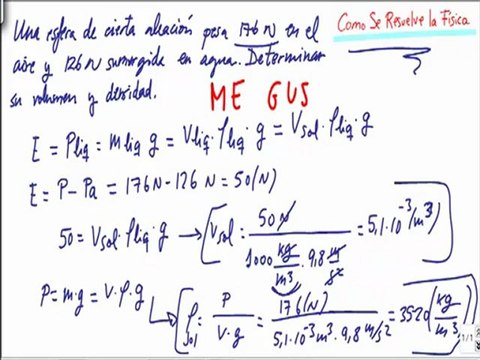 Una esfera de cierta aleación pesa 176 N en el
aire y 126 N sumergida en agua. Determinar
su volumen y densidad.
Como Se Resuelve la Física
ME GUS
E = Pliq = mliq g = Vliq · ρliq · g = Vsol · ρliq · g
E = P - Pa = 176 N - 126 N = 50 (N)
50 = Vsol · ρliq · g → Vsol = 50 N / 1000 kg/m³ · 9,8 m/s² = 5,1 · 10⁻³ (m³)
P = m · g = V · ρ · g → ρsol = P / V · g = 176 (N) / 5,1 · 10⁻³ m³ · 9,8 m/s² = 3520 (kg/m³)
1/1